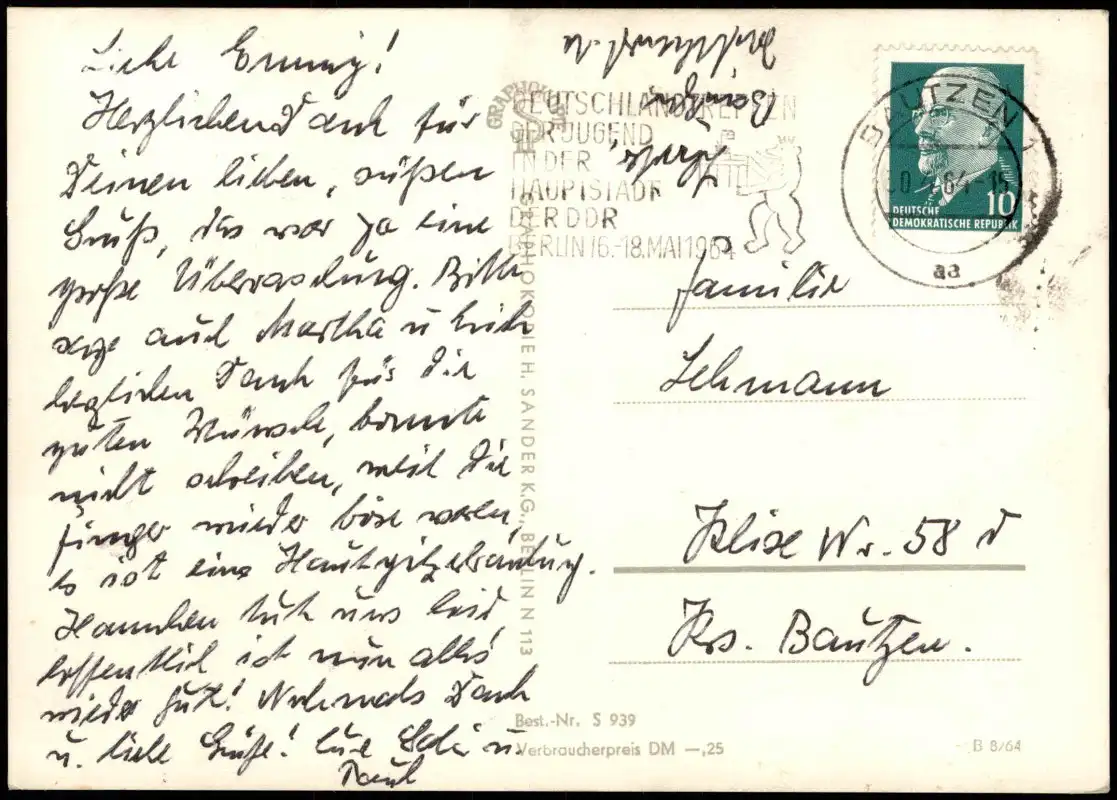 Liebe Emmy!
Herzlichen Dank für
Deinen lieben, süßen
Gruß, das war ja eine
große Überraschung. Bitte
sage auch Martha u Erich
herzlichen Dank für die
guten Wünsche, konnte
nicht schreiben, weil die
Finger wieder böse waren,
es ist eine Hautpilzerkrankung.
Hannchen tut uns leid,
hoffentlich ist nun alles
wieder gut! Nochmals Dank
u. liebe Grüße! Eure u.
GRAPHOKOPIE H. SANDER K.G., BERLIN N 113
DEUTSCHLANDTREFFEN
DER JUGEND
IN DER
HAUPTSTADT
DER DDR
BERLIN 16.-18. MAI 1964
BAUTZEN 1
64-15
aa
10
DEUTSCHE
DEMOKRATISCHE REPUBLIK
Familie
Lehmann
Klix Nr. 58 d
Krs. Bautzen.
Best.-Nr. S 939
Verbraucherpreis DM —,25
B 8/64